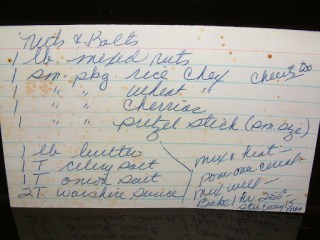 Nuts & Bolts
1 lb mixed nuts
1 sm. pkg rice chex
cheerios too
1 " " wheat "
1 " " cherrios
1 " " pretzel stick (sm. size)
1 lb butter
1 T celery salt
1 T onion salt
2T worshire sauce
mix & heat -
pour over cereal -
mix well -
Bake 1 hr. 250°
Stir every